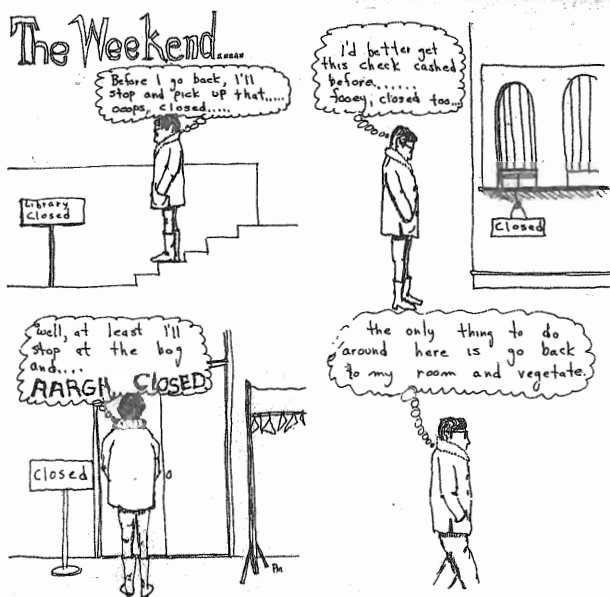 The Weekend.....
Before I go back, I'll
stop and pick up that.....
ooops, closed.....
Library
Closed
I'd better get
this check cashed
before......
fooey, closed too...
Closed
well, at least I'll
stop at the bog
and....
AARGH, CLOSED
Closed
PM
the only thing to do
around here is go back
to my room and vegetate.